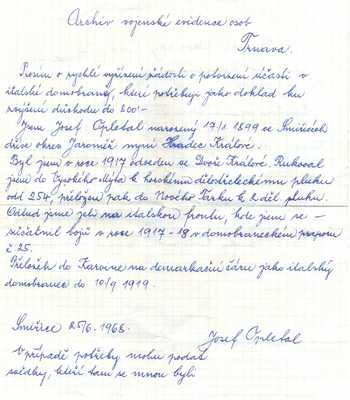 Archiv vojenské evidence osob
Trnava.
Prosím o rychlé vyřízení žádosti o potvrzení účasti v
italské domobraně, které potřebuji jako doklad ku
zvýšení důchodu do 800·-
Jsem Josef Opletal narozený 17/1 1899 ve Smiřicích
dříve okres Jaroměř nyní Hradec Králové.
Byl jsem v roce 1917 odveden ve Dvoře Králové. Rukoval
jsem do Vysokého Mýta k horskému dělostřeleckému pluku
odd 254, přeložen pak do Nového Tarku k 1. děl. pluku.
Odtud jsme jeli na italskou frontu, kde jsem se -
zúčastnil bojů v roce 1917-18 v domobraneckém praporu
č 25.
Přeložen do Karvine na demarkační čáru jako italský
domobranec do 10/9 1919.
Smiřice 25/6. 1968.
Josef Opletal
V případě potřeby mohu podat
svědky, kteří tam se mnou byli